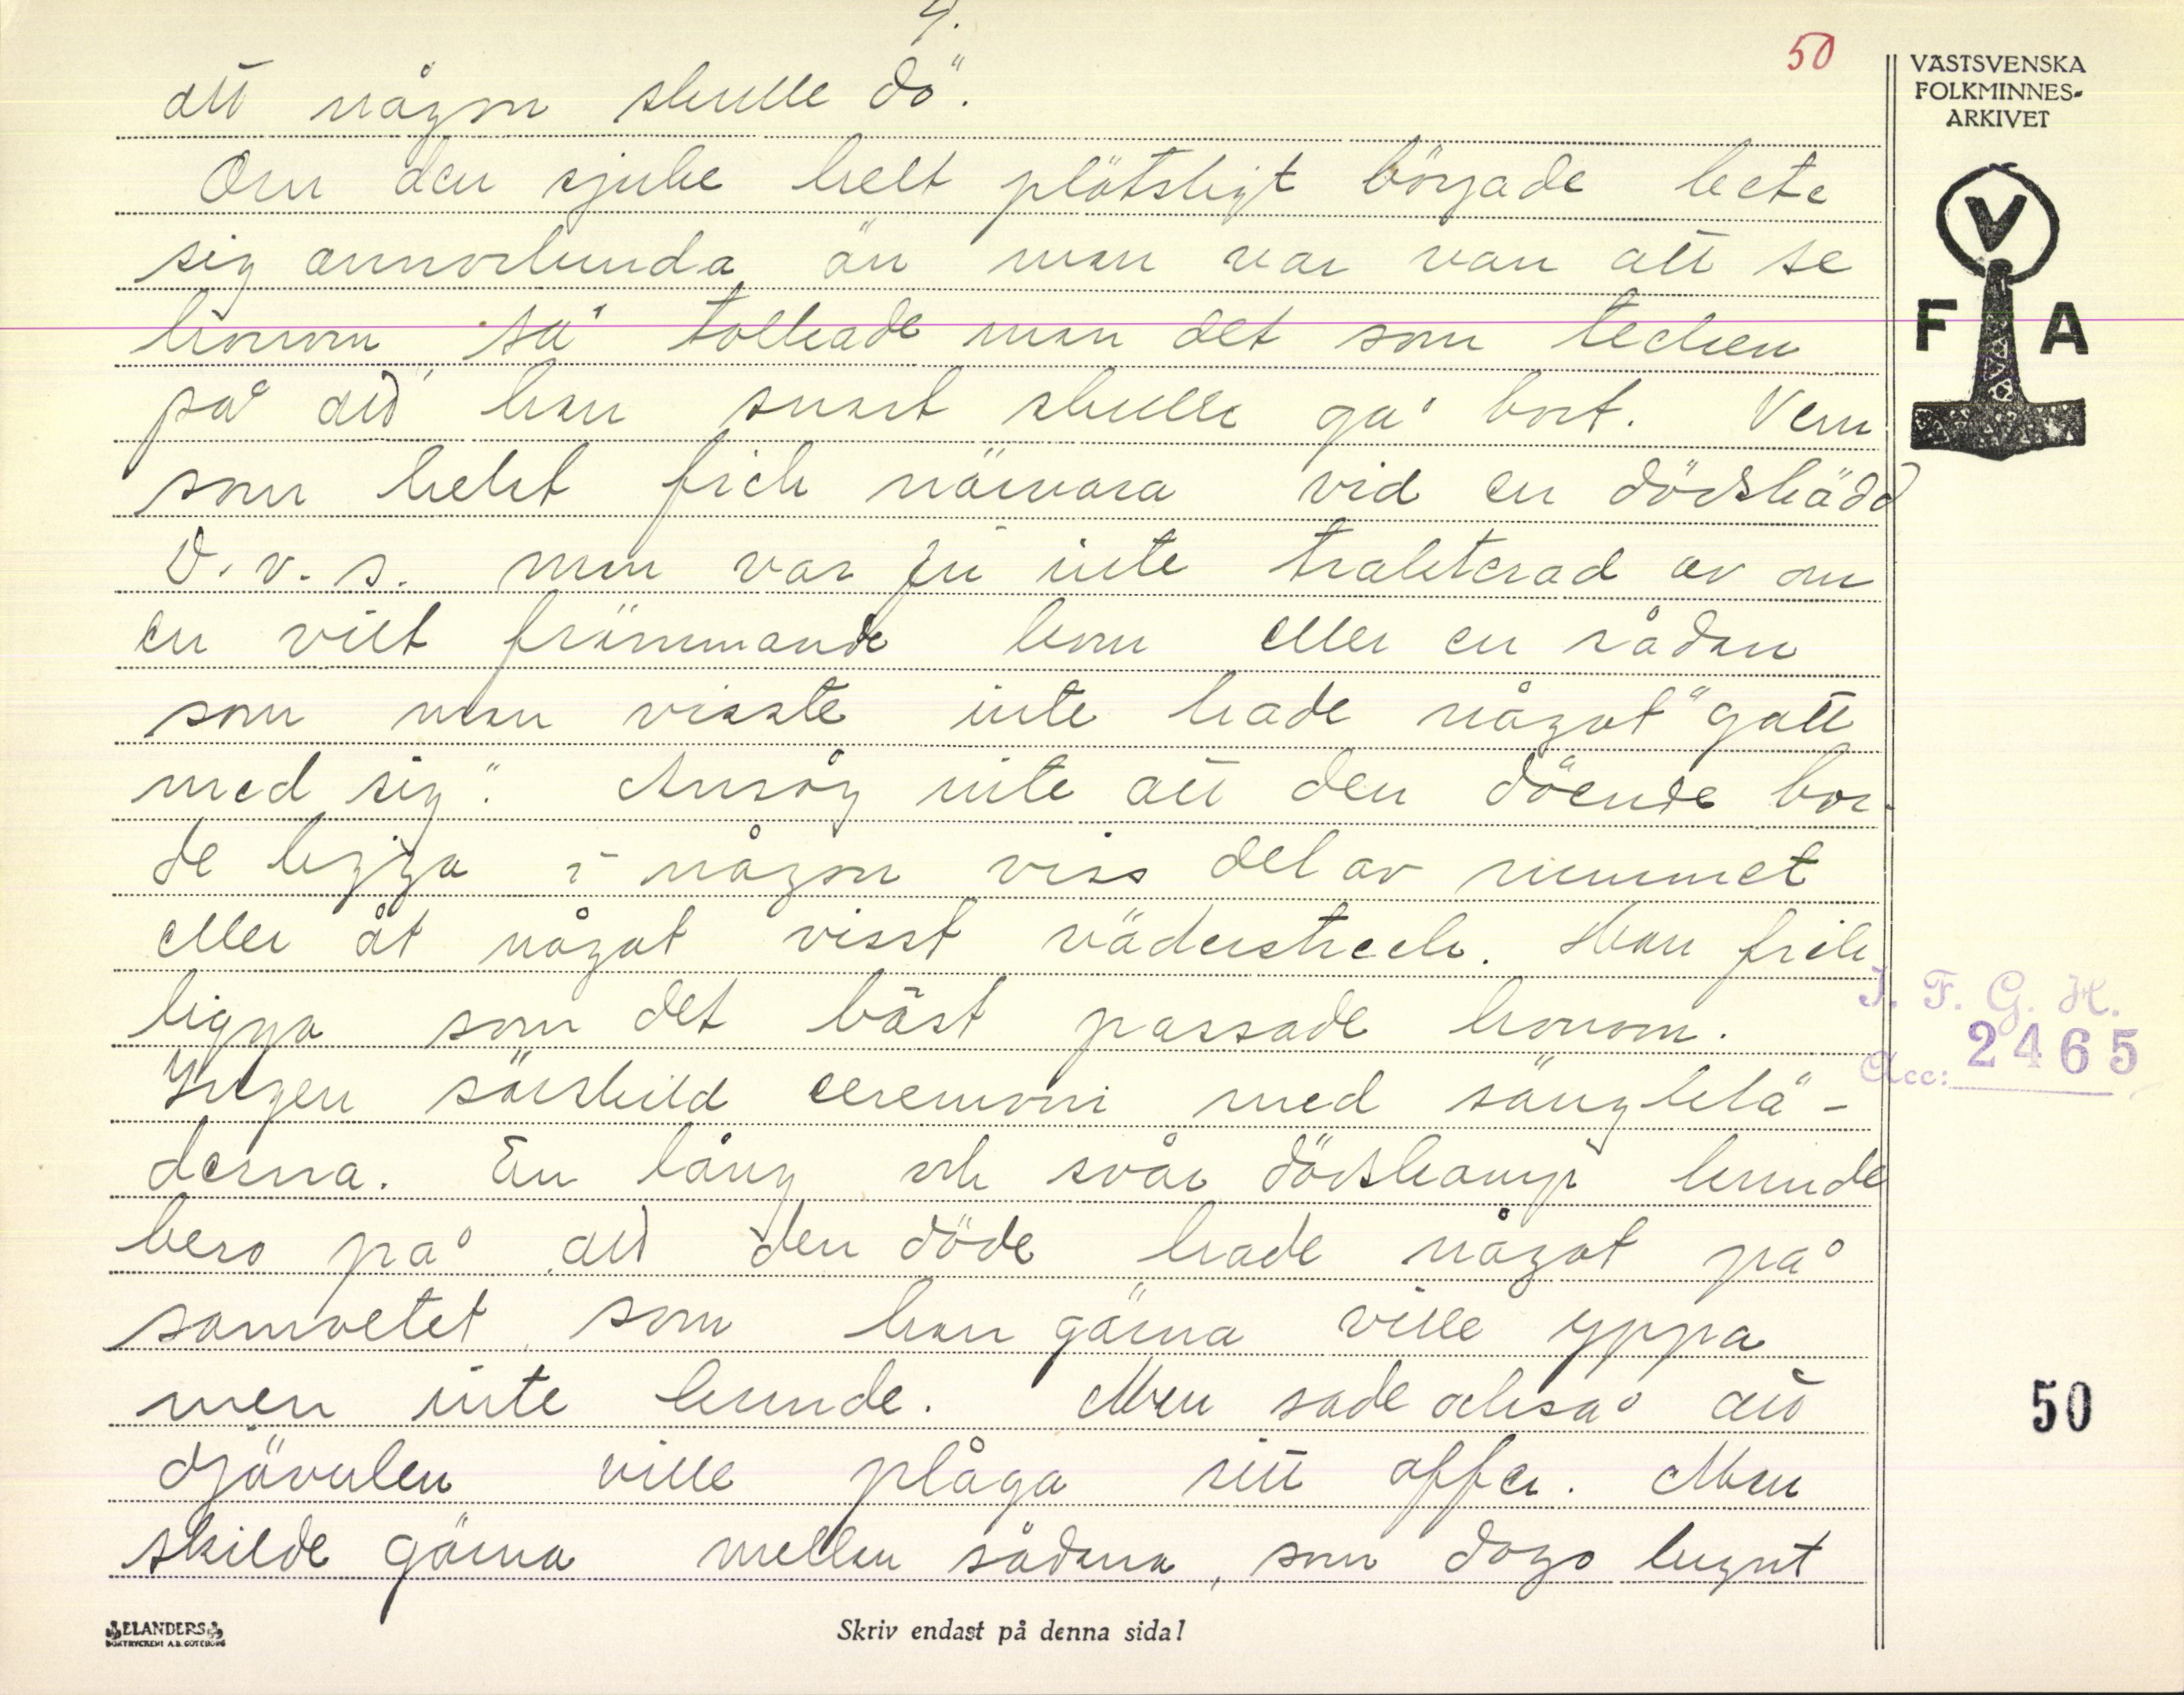 4.
50
att någon skulle dö".
Om den sjuke helt plötsligt började bete
sig annorlunda än man var van att se
honom så tolkade man det som tecken
på att han snart skulle gå bort. Vem
som helst fick närvara vid en dödsbädd
D.v.s. man var ju inte trakterad av om
en vilt främmande kom eller en sådan
som man visste inte hade något "gott
med sig". Ansåg inte att den döende bor-
de ligga i någon viss del av rummet
eller åt något visst väderstreck. Han fick
ligga som det bäst passade honom.
Ingen särskild ceremoni med sängklä-
derna. En lång och svår dödskamp kunde
bero på att den döde hade något på
samvetet som han gärna ville yppa
men inte kunde. Man sade också att
djävulen ville plåga sitt offer. Man
skilde gärna mellan sådana, som dogo lugnt
VÄSTSVENSKA
FOLKMINNES-
ARKIVET
V
F A
I. F. G. H.
Acc: 2465
50
ELANDERS
BOKTRYCKERI A.B. GÖTEBORG
Skriv endast på denna sida!